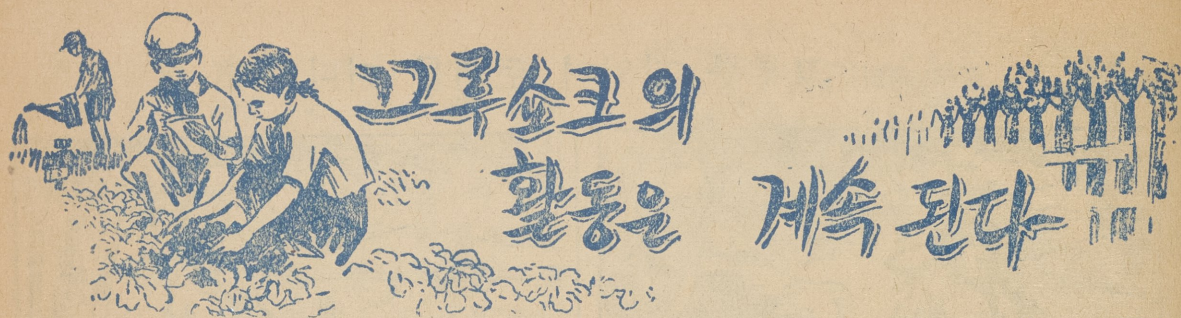 끄루쇼크의
활동은 계속 된다